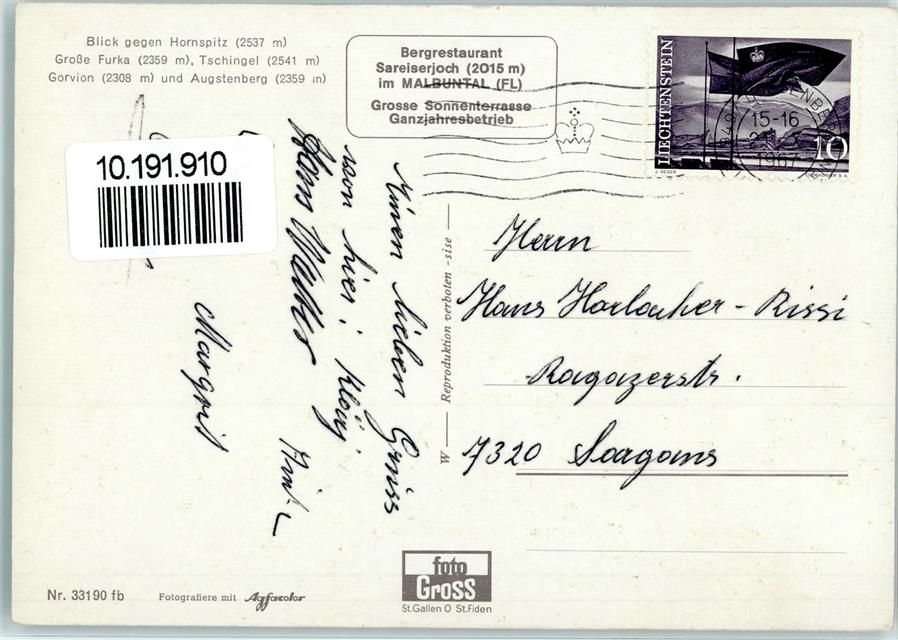 Blick gegen Hornspitz (2537 m)
Große Furka (2359 m), Tschingel (2541 m)
Gorvion (2308 m) und Augstenberg (2359 m)
Bergrestaurant
Sareiserjoch (2015 m)
im MALBUNTAL (FL)
Grosse Sonnenterrasse
Ganzjahresbetrieb
LIECHTENSTEIN
10
15-16
1967
10.191.910
Einen lieben Gruss
von hier:
Hans
Margrit
W — Reproduktion verboten - sise —
Herrn
Hans Horlacher - Rissi
Ragazerstr.
7320 Sargans
foto
Gross
St.Gallen O St.Fiden
Nr. 33190 fb
Fotografiere mit Agfacolor